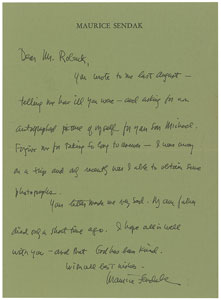 MAURICE SENDAK
Dear Mr.
You wrote to me last August —
telling me how ill you were — and asking for an
autographed picture of myself for your son Michael.
Forgive me for taking so long to answer — I was away
on a trip and only recently was I able to obtain some
photographs.
Your letter made me very sad. My own father
died only a short time ago. I hope all is well
with you — and that God has been kind.
With all best wishes,
Maurice Sendak